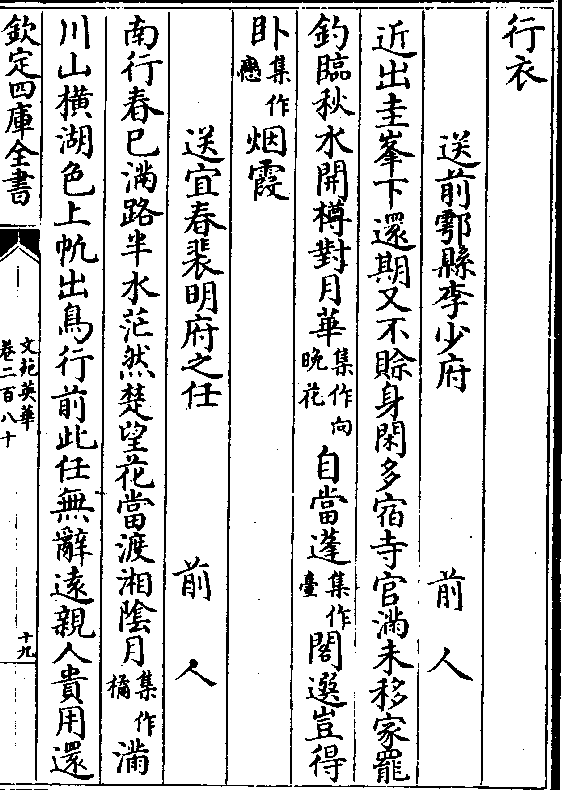 行衣
送前鄠縣李少府　前人
近出圭峯下還期又不賖身閑多宿寺官滿未移家罷
釣臨秋水開樽對月華集作向晚花自當蓬集作臺閣選豈得
卧集作戀烟霞
送宜春裴明府之任　前人
南行春已滿路半水茫然楚望花當渡湘隂月集作橘滿
川山橫湖色上帆出鳥行前此任無辭逺親人貴用還
欽定四庫全書
文苑英華
卷二百八十
十九